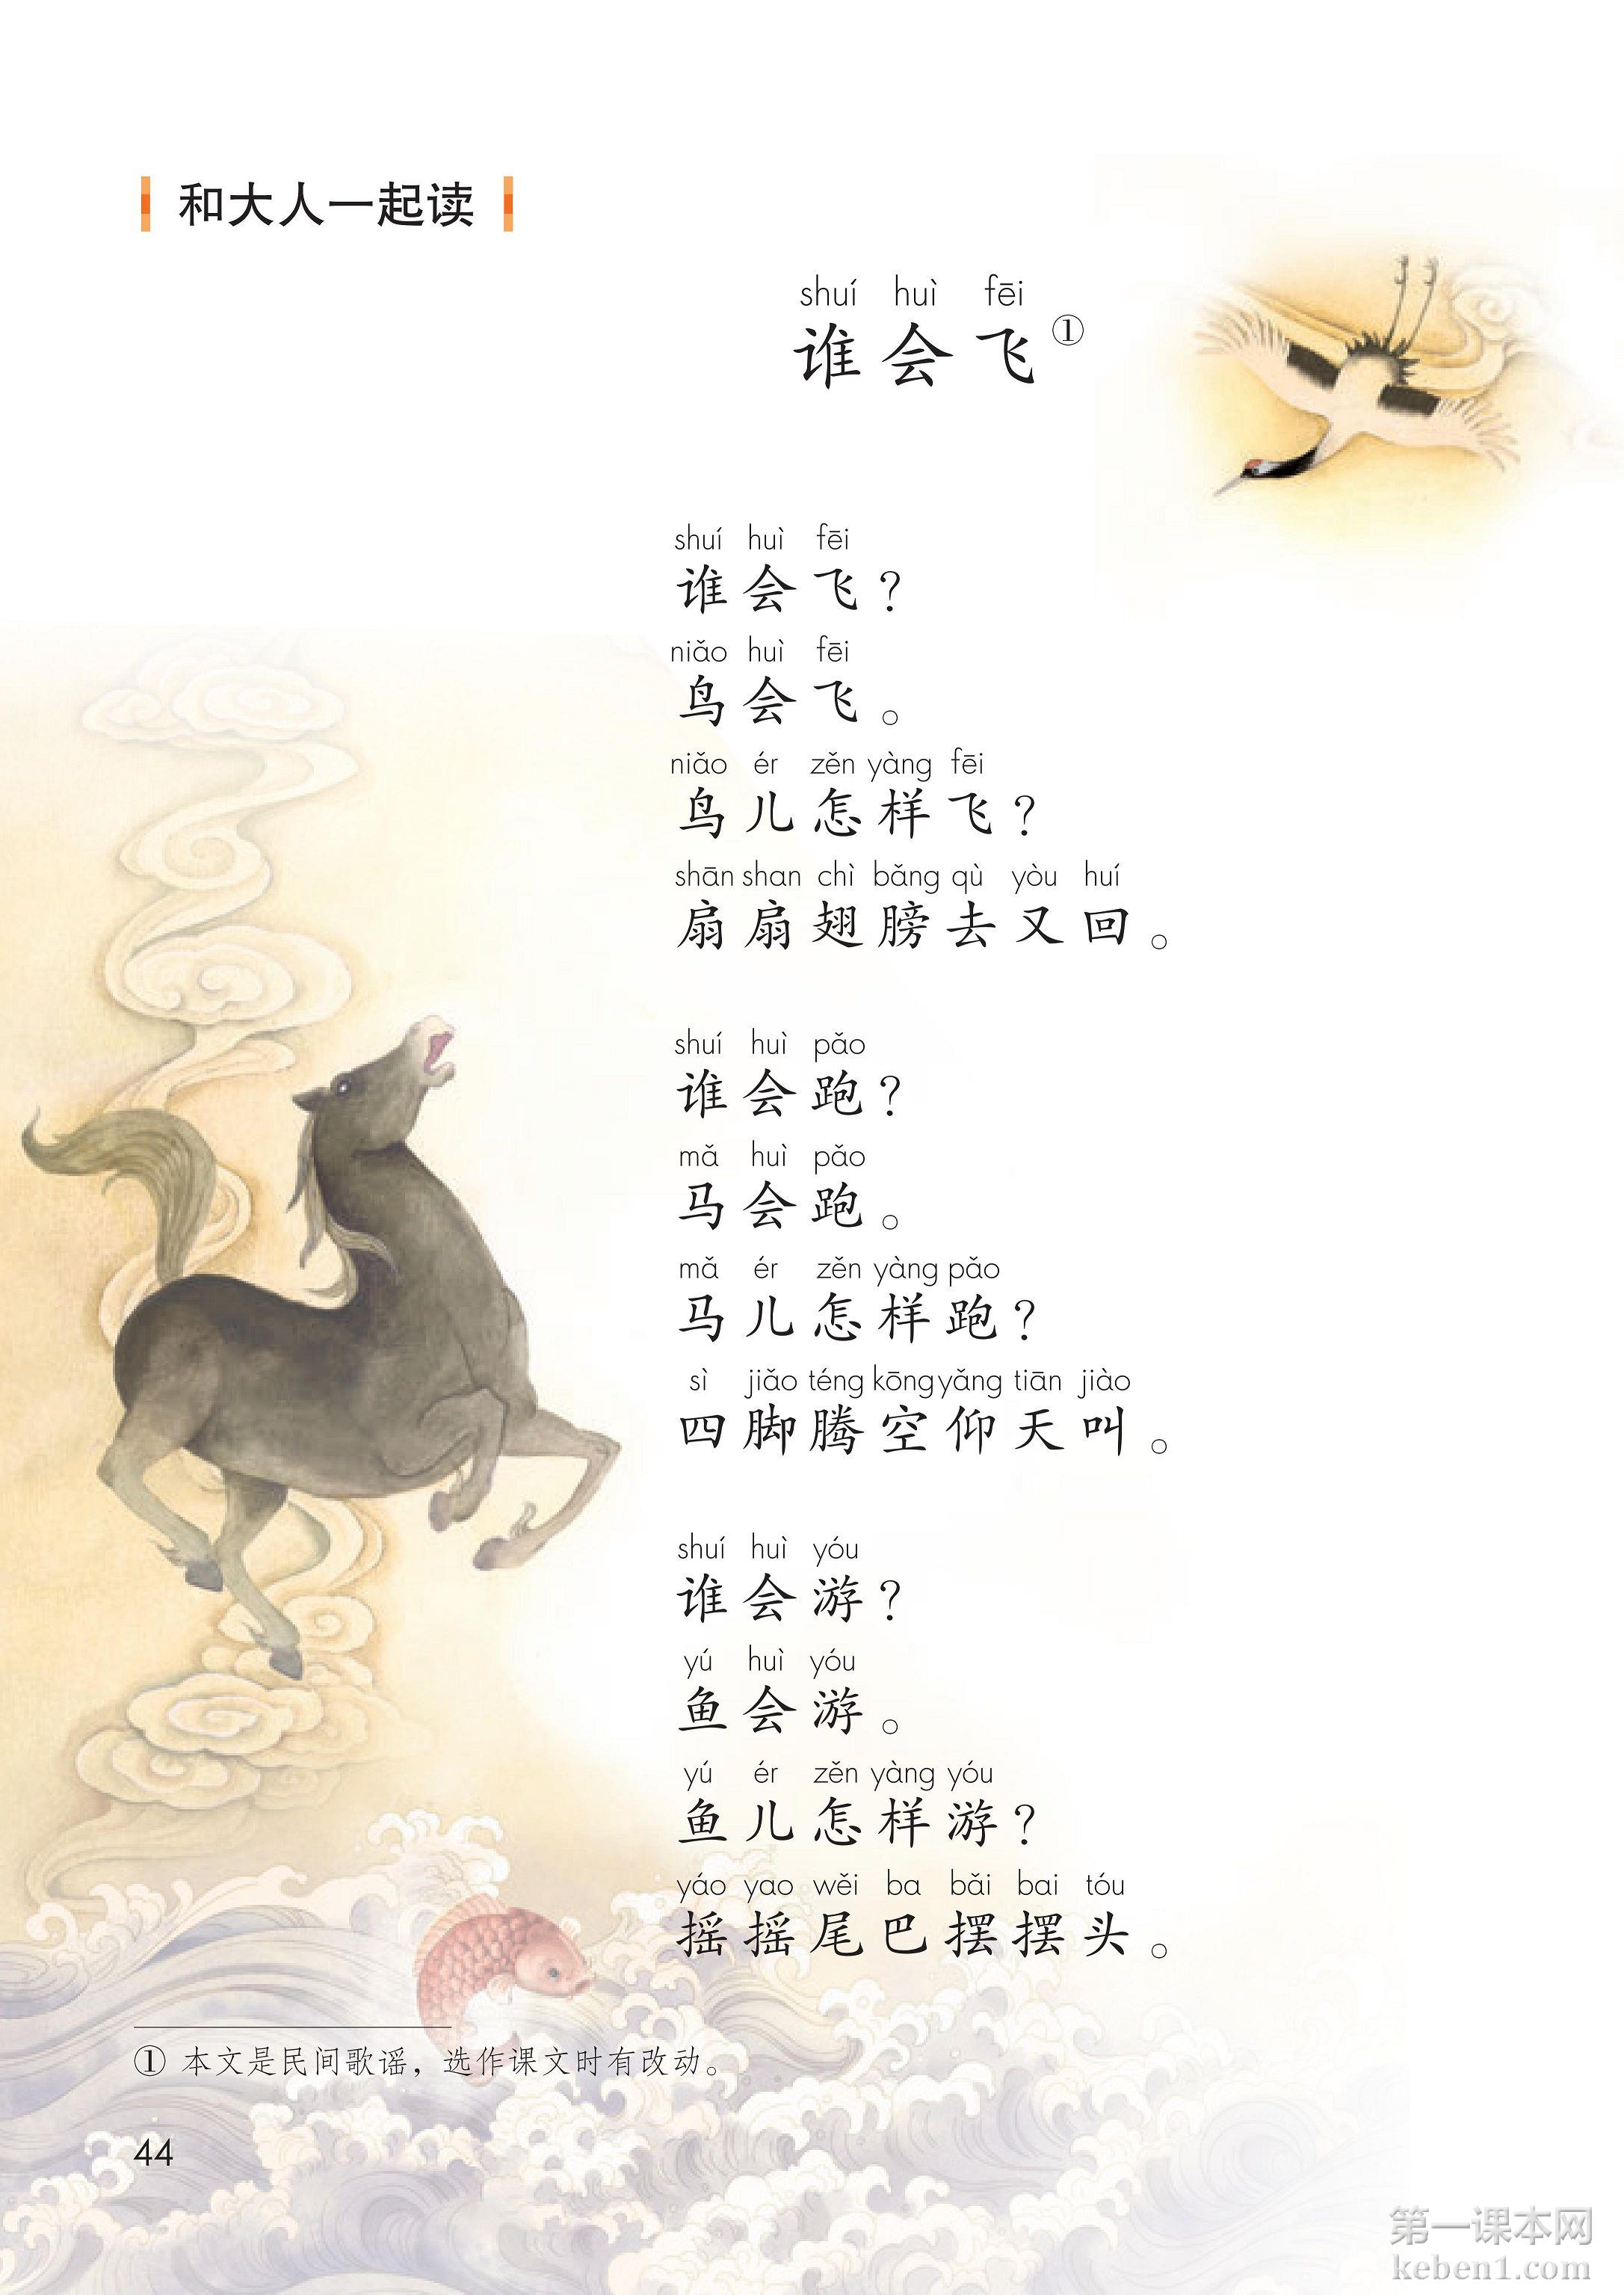 和大人一起读
shuí huì fēi
谁会飞①
shuí huì fēi
谁会飞？
niǎo huì fēi
鸟会飞。
niǎo ér zěn yàng fēi
鸟儿怎样飞？
shān shan chì bǎng qù yòu huí
扇扇翅膀去又回。
shuí huì pǎo
谁会跑？
mǎ huì pǎo
马会跑。
mǎ ér zěn yàng pǎo
马儿怎样跑？
sì jiǎo téng kōng yǎng tiān jiào
四脚腾空仰天叫。
shuí huì yóu
谁会游？
yú huì yóu
鱼会游。
yú ér zěn yàng yóu
鱼儿怎样游？
yáo yao wěi ba bǎi bai tóu
摇摇尾巴摆摆头。
① 本文是民间歌谣，选作课文时有改动。
44
第一课本网
keben1.com